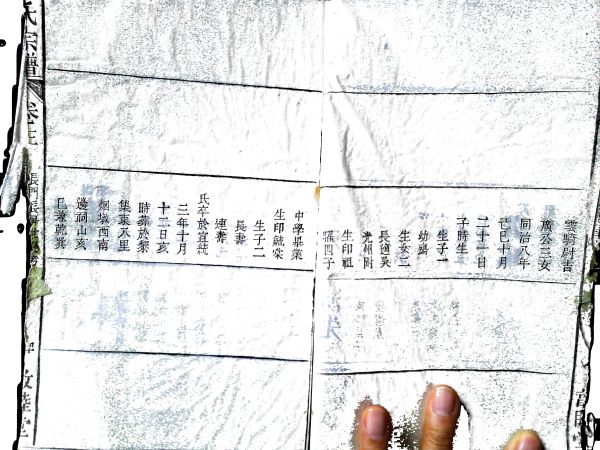 雲騎尉書
廣公三女
同治八年
己巳十月
二十一日
子時生
生子一
幼殤
生女二
長適吳
光州
生印祖
四子
中學畢業
生印毓棠
生子二
長壽
連壽
氏卒於宣統
三年十月
十二日亥
時葬於黎
集東八里
烟墩西南
邊祠山亥
巳兼乾巽
氏宗譜
卷三
敦睦堂